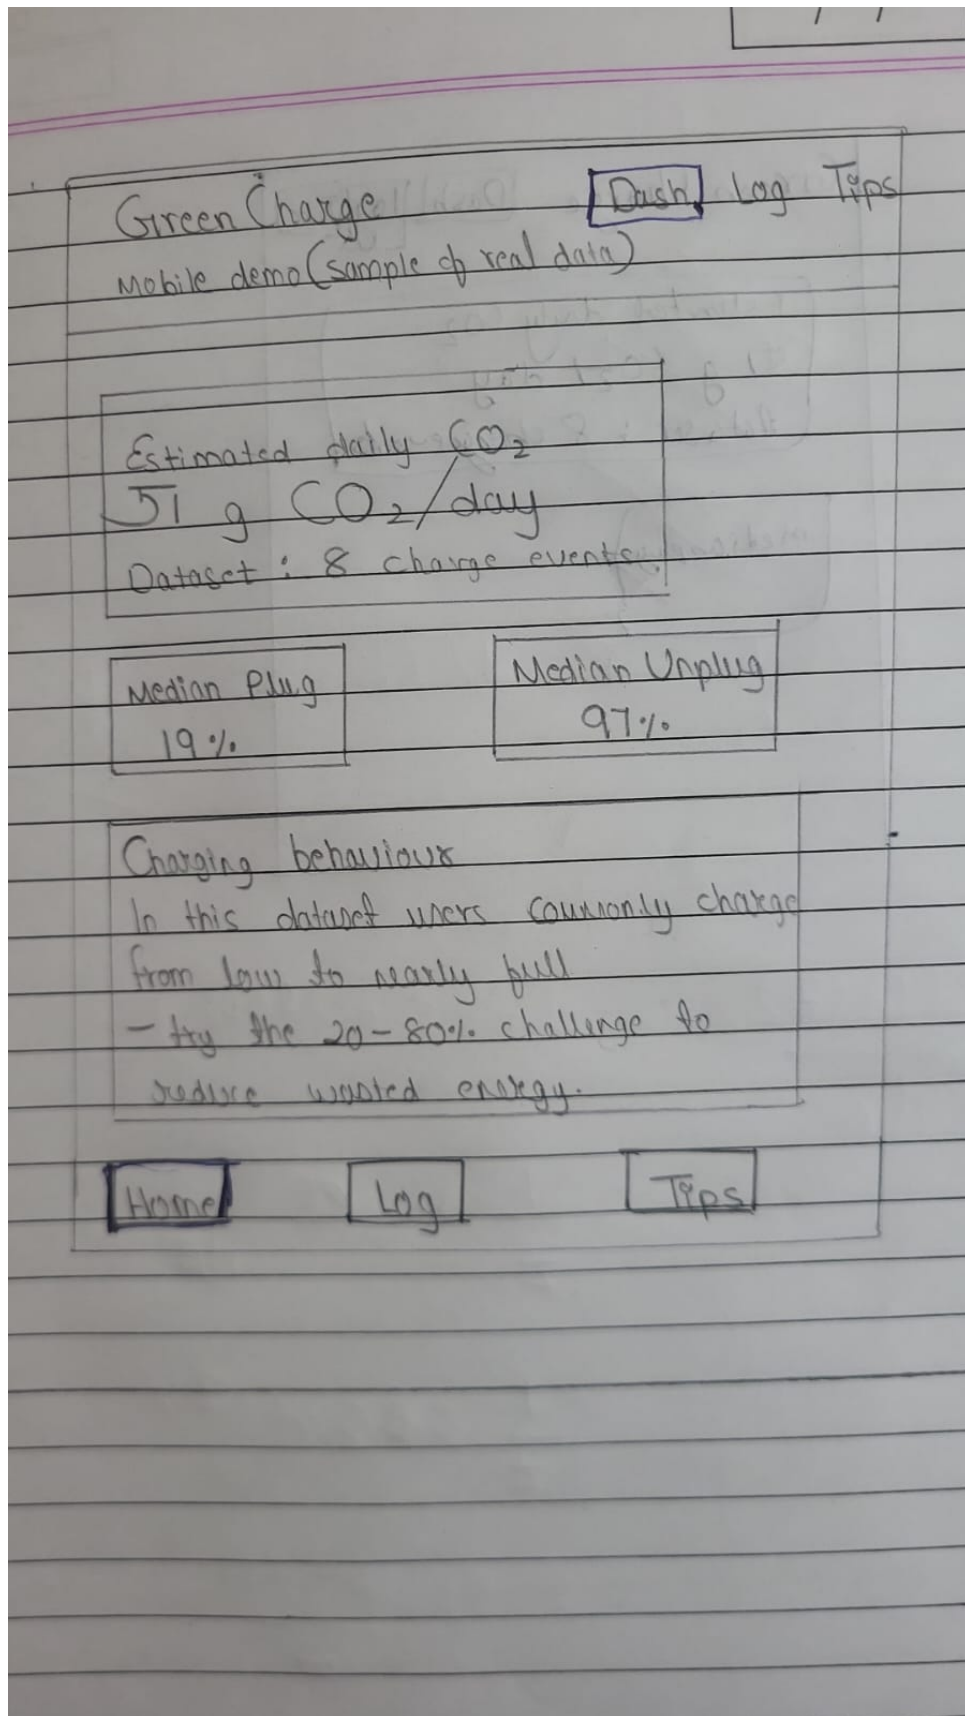 Green Charge Dash Log Tips
Mobile demo (sample of real data)
Estimated daily CO₂
51 g CO₂/day
Dataset : 8 charge events.
Median Plug
19%
Median Unplug
97%
Charging behaviour
In this dataset users commonly charge
from low to nearly full
- try the 20-80% challenge to
reduce wasted energy.
Home Log Tips